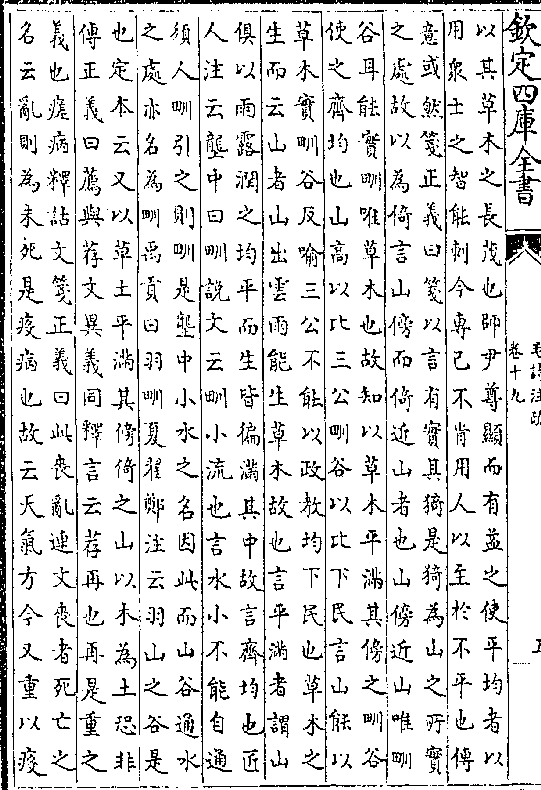 欽定四庫全書
毛詩注疏
卷十九
五
以其草木之長茂也師尹尊顯而有益之使平均者以
用衆士之智能刺今專己不肯用人以至於不平也傳
意或然箋正義曰箋以言有實其猗是猗為山之所實
之處故以為倚言山傍而倚近山者也山傍近山唯畎
谷耳能實畎唯草木也故知以草木平滿其傍之畎谷
使之齊均也山高以比三公畎谷以比下民言山能以
草木實畎谷反喻三公不能以政教均下民也草木之
生而云山者山出雲雨能生草木故也言平滿者謂山
俱以雨露潤之均平而生皆徧滿其中故言齊均也匠
人注云壟中曰畎說文云畎小流也言水小不能自通
須人畎引之則畎是壟中小水之名因此而山谷通水
之處亦名為畎禹貢曰羽畎夏翟鄭注云羽山之谷是
也定本云又以草土平滿其傍倚之山以木為土恐非
傳正義曰薦與荐文異義同釋言云荐再也再是重之
義也瘥病釋詁文箋正義曰此喪亂連文喪者死亡之
名云亂則為未死是疫病也故云天氣方今又重以疫